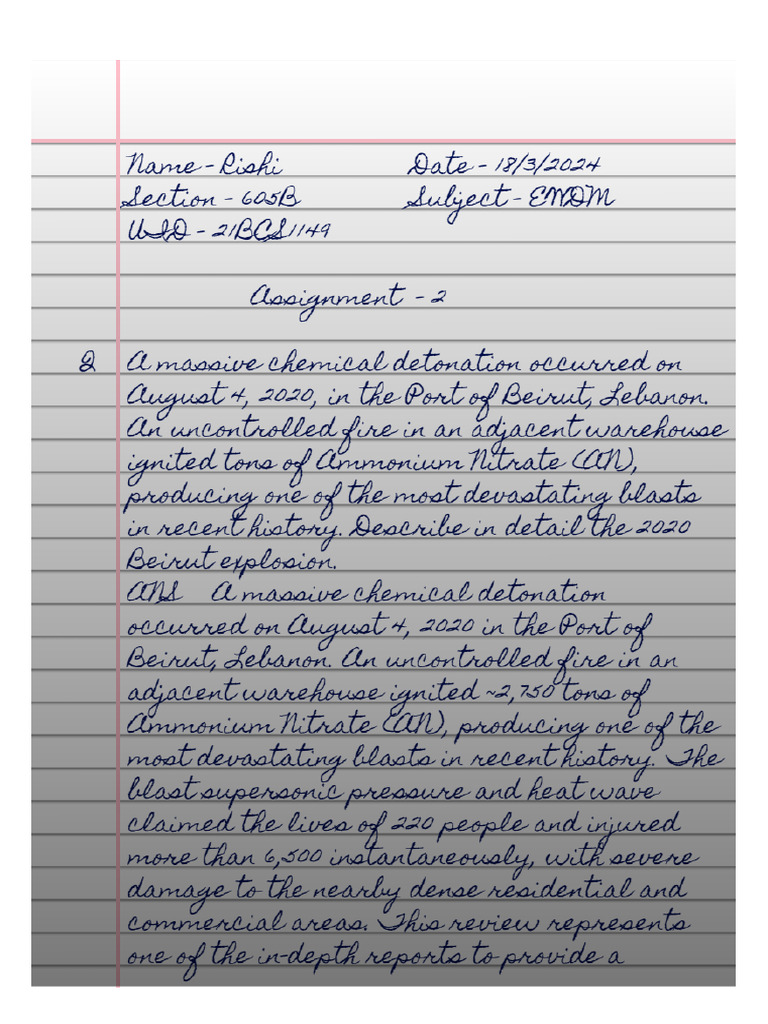 Name - Rishi Date - 18/3/2024
Section - 605B Subject - EMDM
UID - 21BCS1149
Assignment - 2
Q A massive chemical detonation occurred on
August 4, 2020, in the Port of Beirut, Lebanon.
An uncontrolled fire in an adjacent warehouse
ignited tons of Ammonium Nitrate (AN),
producing one of the most devastating blasts
in recent history. Describe in detail the 2020
Beirut explosion.
ANS A massive chemical detonation
occurred on August 4, 2020 in the Port of
Beirut, Lebanon. An uncontrolled fire in an
adjacent warehouse ignited ~2,750 tons of
Ammonium Nitrate (AN), producing one of the
most devastating blasts in recent history. The
blast supersonic pressure and heat wave
claimed the lives of 220 people and injured
more than 6,500 instantaneously, with severe
damage to the nearby dense residential and
commercial areas. This review represents
one of the in-depth reports to provide a